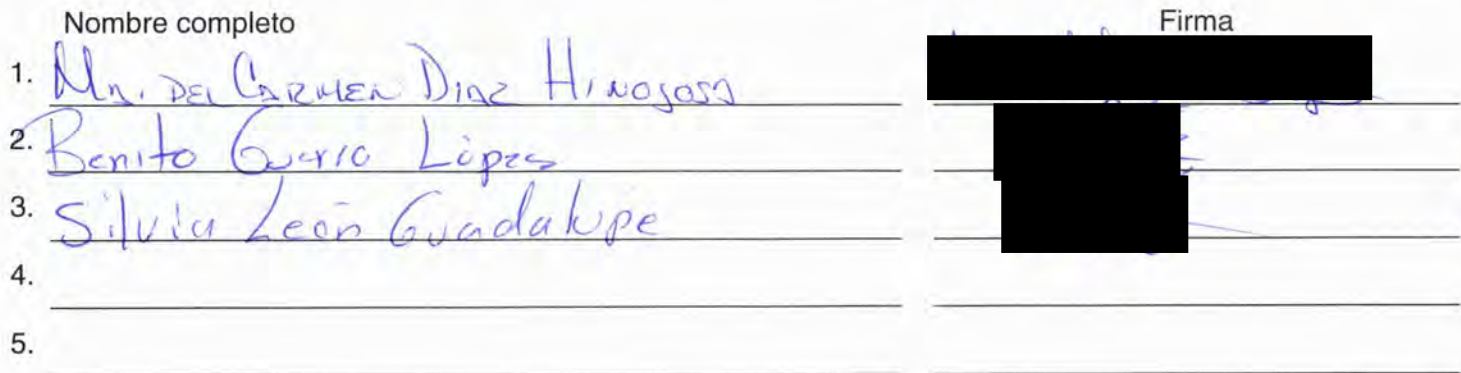 Nombre completo Firma
1. Ma. DEL CARMEN DIAZ HINOJOSA
2. Benito Guerra López
3. Silvia León Guadalupe
4.
5.